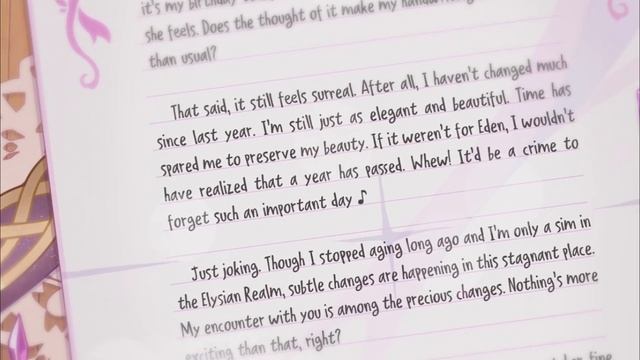 it's my birthday
she feels. Does the thought of it make my handwriting
than usual?
That said, it still feels surreal. After all, I haven't changed much
since last year. I'm still just as elegant and beautiful. Time has
spared me to preserve my beauty. If it weren't for Eden, I wouldn't
have realized that a year has passed. Whew! It'd be a crime to
forget such an important day ♪
Just joking. Though I stopped aging long ago and I'm only a sim in
the Elysian Realm, subtle changes are happening in this stagnant place.
My encounter with you is among the precious changes. Nothing's more
exciting than that, right?
fine